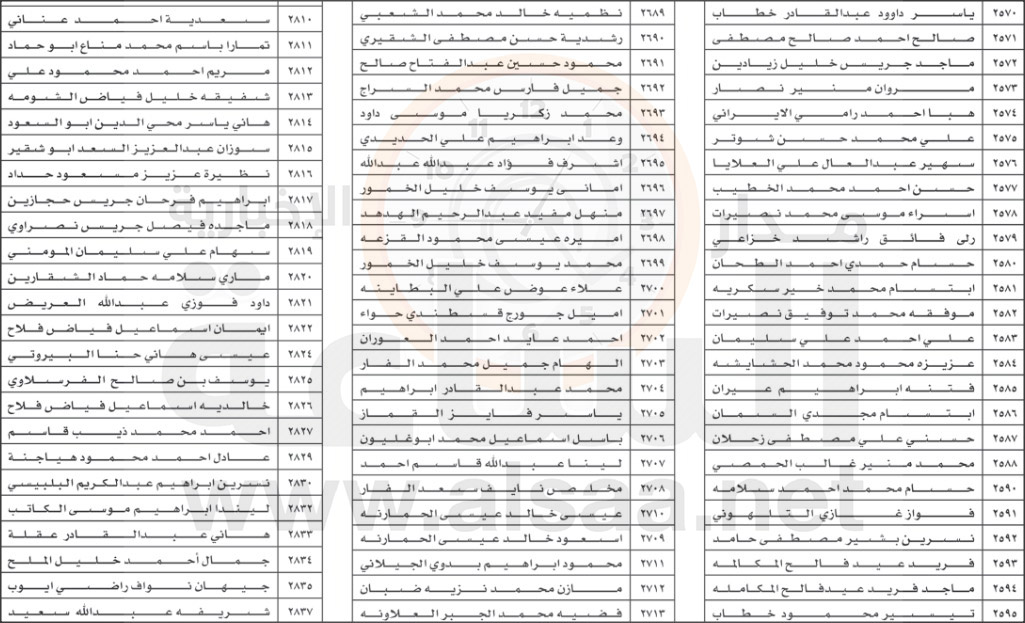 ٢٥٧٠ ياسر داوود عبدالقادر خطاب
٢٥٧١ صالح احمد صالح مصطفى
٢٥٧٢ ماجد جريس خليل زيادين
٢٥٧٣ مروان منير نصار
٢٥٧٤ هبا احمد رامي الايراني
٢٥٧٥ علي محمد حسن شوتر
٢٥٧٦ سهير عبدالعال علي العلايا
٢٥٧٧ حسن احمد محمد الخطيب
٢٥٧٨ اسراء موسى محمد نصيرات
٢٥٧٩ رلى فائق راشد خزاعي
٢٥٨٠ حسام حمدي احمد الطحان
٢٥٨١ ابتسام محمد خير سكريه
٢٥٨٢ موفقه محمد توفيق نصيرات
٢٥٨٣ علي احمد علي سليمان
٢٥٨٤ عزيزه محمود محمد الحشايشه
٢٥٨٥ فتنه ابراهيم عيران
٢٥٨٦ ابتسام مجدي السمان
٢٥٨٧ حسني علي مصطفى زحلان
٢٥٨٨ محمد منير غالب الحمصي
٢٥٩٠ حسام محمد احمد سلامه
٢٥٩١ فواز غازي التهوني
٢٥٩٢ نسرين بشير مصطفى حامد
٢٥٩٣ فريد عيد فالح المكالمه
٢٥٩٤ ماجد فريد عيدفالح المكامله
٢٥٩٥ تيسير محمود خطاب
٢٦٨٩ نظميه خالد محمد الشعبي
٢٦٩٠ رشدية حسن مصطفى الشقيري
٢٦٩١ محمود حسين عبدالفتاح صالح
٢٦٩٢ جميل فارس محمد السراج
٢٦٩٣ محمد زكريا موسى داود
٢٦٩٤ وعد ابراهيم علي الحديدي
٢٦٩٥ اشرف فؤاد عبدالله عبدالله
٢٦٩٦ اماني يوسف خليل الخمور
٢٦٩٧ منهل مفيد عبدالرحيم الهدهد
٢٦٩٨ اميره عيسى محمود القزعه
٢٦٩٩ محمد يوسف خليل الخمور
٢٧٠٠ علاء عوض علي البطاينه
٢٧٠١ اميل جورج قسطندي حواء
٢٧٠٢ احمد عايد احمد العوران
٢٧٠٣ الهام جميل محمد الفار
٢٧٠٤ محمد عبدالقادر ابراهيم
٢٧٠٥ ياسر فايز القماز
٢٧٠٦ باسل اسماعيل محمد ابوغليون
٢٧٠٧ لينا عبدالله قاسم احمد
٢٧٠٨ مخلص نايف سعد الفار
٢٧١٠ عيسى خالد عيسى الحمارنه
٢٧٠٩ اسعود خالد عيسى الحمارنه
٢٧١١ محمود ابراهيم بدوي الجيلاني
٢٧١٢ مازن محمد نزيه ضبان
٢٧١٣ فضيه محمد الجبر العلاونه
٢٨١٠ سعدية احمد عناني
٢٨١١ تمارا باسم محمد مناع ابو حماد
٢٨١٢ مريم احمد محمود علي
٢٨١٣ شفيقه خليل فياض الشومه
٢٨١٤ هاني ياسر محي الدين ابو السعود
٢٨١٥ سوزان عبدالعزيز السعد ابو شقير
٢٨١٦ نظيرة عزيز مسعود حداد
٢٨١٧ ابراهيم فرحان جريس حجازين
٢٨١٨ ماجده فيصل جريس نصراوي
٢٨١٩ سهام علي سليمان المومني
٢٨٢٠ ماري سلامه حماد الشقارين
٢٨٢١ داود فوزي عبدالله العريض
٢٨٢٢ ايمان اسماعيل فياض فلاح
٢٨٢٤ عيسى هاني حنا البيروتي
٢٨٢٥ يوسف بن صالح الفرسلاوي
٢٨٢٦ خالديه اسماعيل فياض فلاح
٢٨٢٧ احمد محمد ذيب قاسم
٢٨٢٩ عادل احمد محمود هياجنة
٢٨٣٠ نسرين ابراهيم عبدالكريم البلبيسي
٢٨٣٢ ليندا ابراهيم موسى الكاتب
٢٨٣٣ هاني عبدالقادر عقلة
٢٨٣٤ جمال أحمد خليل الملح
٢٨٣٥ جيهان نواف راضي ايوب
٢٨٣٧ شريفه عبدالله سعيد
مدار الساعة الإخبارية
www.alsaa.net